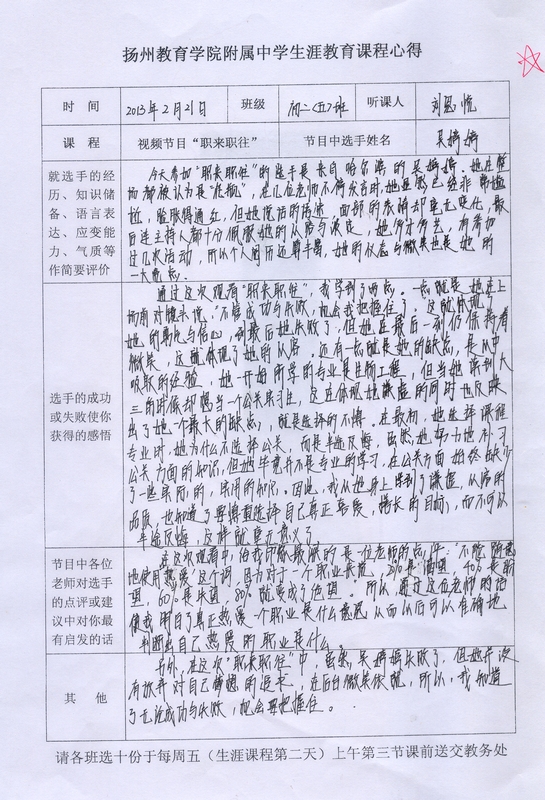 扬州教育学院附属中学生涯教育课程心得
时 间 2013年2月21日 班级 初二〈五〉班 听课人 刘 悦
课 程 视频节目“职来职往” 节目中选手姓名 吴婧婧
就选手的经
历、知识储
备、语言表
达、应变能
力、气质等
作简要评价
今天参加“职来职往”的选手是来自哈尔滨的吴婧婧,她在整
场都被认为是“花瓶”,在几位老师不停发言时,她虽然已经非常尴
尬,脸胀得通红,但她说话的语速,面部的表情却毫无变化,最
后连主持人都十分佩服她的从容与淡定,她 才 艺,有参加
过几次活动,所以个人阅历还算丰富,她的仪态与微笑也是她的
一大亮点。
选手的成功
或失败使你
获得的感悟
通过这次观看“职来职往”,我学到了两点。一点就是她在上
场前对镜头说,“不管成功与失败,机会我把握住了。”这就体现了
她的勇气与信心,到最后她失败了,但她在最后一刻仍保持着
微笑,这就体现了她的从容。还有一点就是她的缺点,是从中
吸取的经验,她一开始所学的专业是生物工程,但当她读到大
三的时候却想当一个公关实习生,这在体现她谦虚的同时也反映
出了她一个最大的缺点,就是选择的不慎。在最初,她选择课程
专业时,她为什么不选择公关,而是半途反悔,虽然,她努力地补习
公关方面的知识,但她毕竟并不是专业的学习,在公关方面始终缺少
了一些实际的,实用的知识。因此,我从她身上学到了谦虚,从容的
品质,也知道了要慎重选择自己真正喜爱,擅长的目标,而不可以
半途反悔,这样就毫无意义了。
节目中各位
老师对选手
的点评或建
议中对你最
有启发的话
在这次观看中,给我印象最深的是一位老师的点评:“不能随意
地使用热爱”这个词,因为对于一个职业来说,20%是渴望,40%是期
望,60%是失望,80%就变成了绝望。所以,通过这位老师的话
使我明白了真正热爱一个职业是什么意思,从而以后可以准确地
判断出自己热爱的职业是什么。
其 他
另外,在这次“职来职往”中,虽然,吴婧婧失败了,但她并没
有放弃对自己梦想的追求,在后台微笑依旧,所以,我知道
了无论成功与失败,机会要把握住。
请各班选十份于每周五(生涯课程第二天)上午第三节课前送交教务处